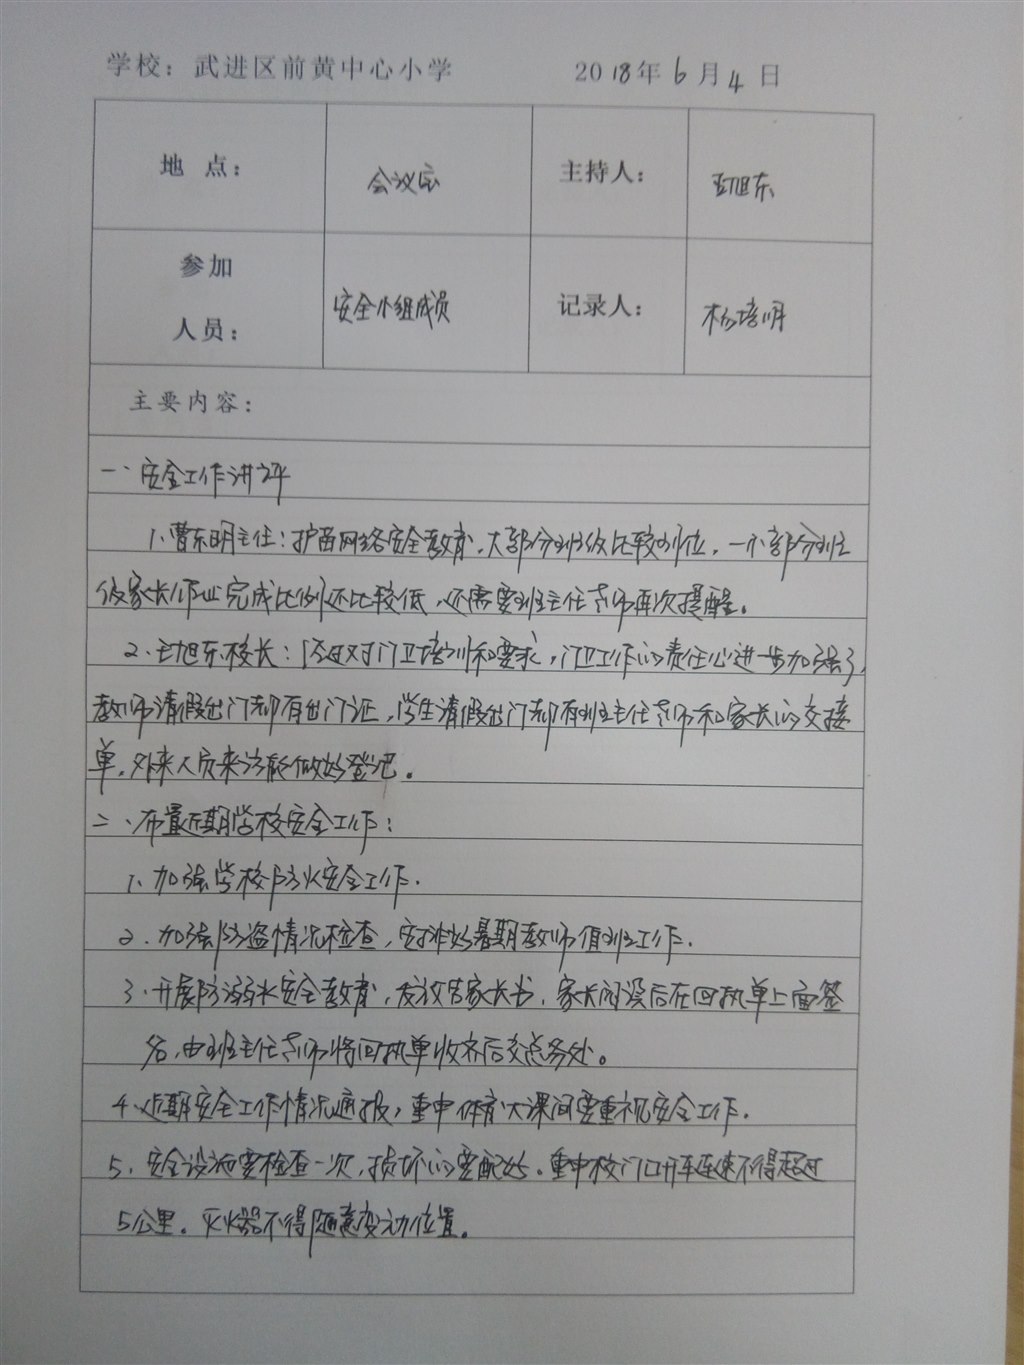 学校：武进区前黄中心小学 2018年6月4日
地 点： 会议室 主持人： 王旭东
参加
人员： 安全小组成员 记录人： 杨培明
主要内容：
一、安全工作讲评
1、曹东明主任：护苗网络安全教育，大部分班级比较到位，一小部分班
级家长作业完成比例还比较低，还需要班主任老师再次提醒。
2、王旭东校长：门卫培训和要求，门卫工作的责任心进一步加强了，
教师请假出门都有出门证，学生请假出门都有班主任老师和家长的交接
单，外来人员来访能做好登记。
二、布置近期学校安全工作：
1、加强学校防火安全工作.
2、加强防盗情况检查，安排好暑期教师值班工作.
3、开展防溺水安全教育，发放告家长书，家长阅读后在回执单上面签
名，由班主任老师将回执单收齐后交总务处。
4、近期安全工作情况通报，重申体育大课间要重视安全工作.
5、安全设施要检查一次，损坏的要配好。重申校门口开车速不得超过
5公里。灭火器不得随意变动位置。